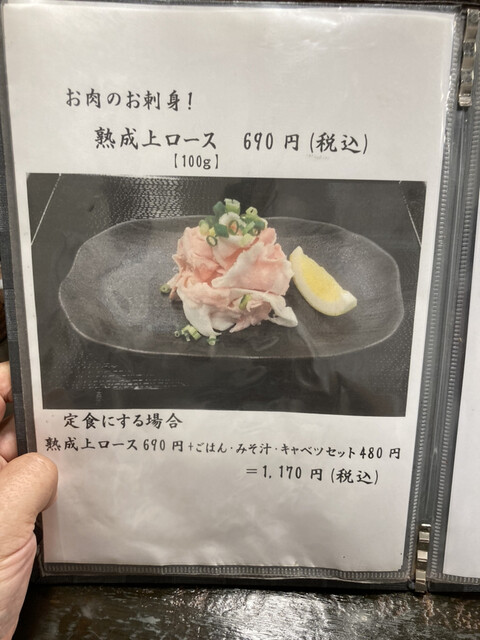 お肉のお刺身!
熟成上ロース 690円(税込)
【100g】
定食にする場合
熟成上ロース690円+ごはん・みそ汁・キャベツセット480円
=1,170円(税込)